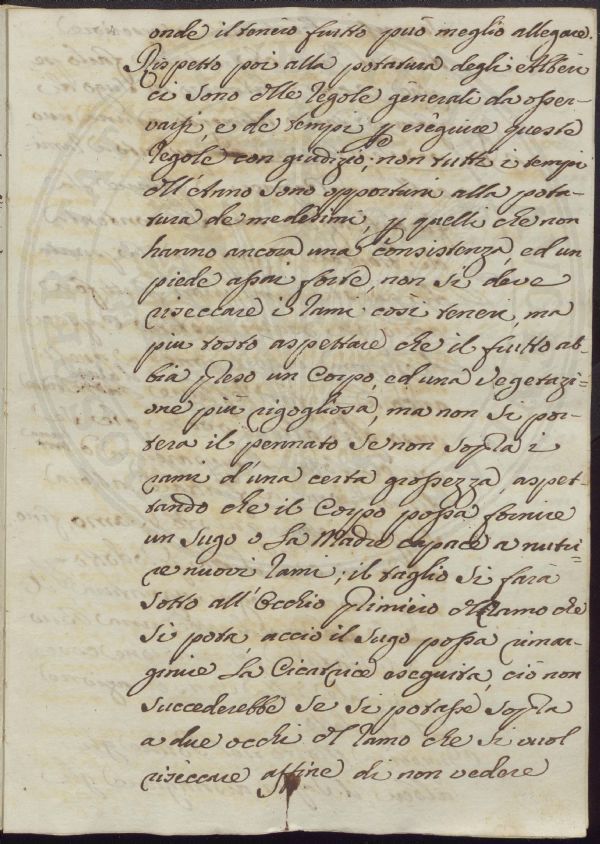 onde il tenero frutto può meglio allegare.
Rispetto poi alla potatura degli Alberi
ci sono delle regole generali da osser-
varsi, e de tempi p eseguire queste
regole con giudizio; non tutti i tempi
dell'Anno sono opportuni alla pota-
tura de medesimi, p quelli che non
hanno ancora una consistenza, ed un
piede assai forte, non si deve
riseccare i rami così teneri, ma
piu tosto aspettare che il frutto ab-
bia preso un Corpo, ed una vegetazi=
one più rigogliosa, ma non si por-
terà il pennato se non sopra i
rami d'una certa grossezza, aspet-
tando che il Corpo possa fornire
un sugo o la Madre capace a nutri=
re nuovi rami; il taglio si farà
sotto all'Occhio primiero del ramo che
si pota, acciò il sugo possa rimar-
ginire la Cicatrice eseguita, ciò non
succederebbe se si potasse sopra
a due occhi del ramo che si vuol
riseccare affine di non vedere